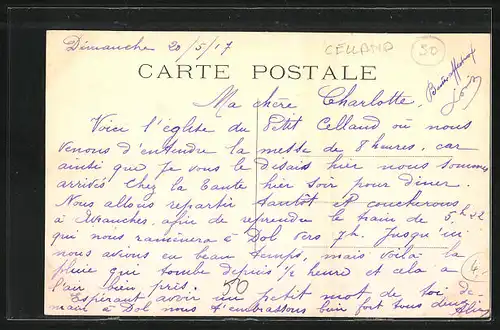 Dimanche 20/5/17
CELLAND
50
CARTE POSTALE
Ma chère Charlotte.
Voici l'église du Petit Celland où nous
venons d'entendre la messe de 8 heures, car
ainsi que je vous le disais hier nous sommes
arrivés chez la tante hier soir pour dîner.
Nous allons repartir tantôt et coucherons
à Avranches, afin de reprendre le train de 5h
qui nous ramènera à Dol vers 7h. Jusqu'ici
nous avions eu beau temps, mais voilà la
pluie qui tombe depuis 1/2 heure et cela a
l'air bien pris.
50
4,-
Espérant avoir un petit mot de toi de-
main à Dol nous t'embrassons bien fort tous deux